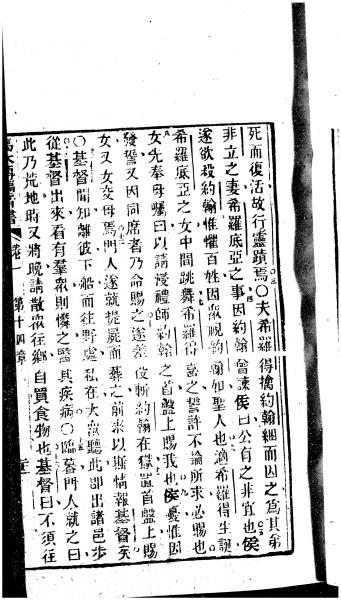 死而復活故行靈蹟焉〇夫希羅得擒約翰綑而囚之為其弟
非立之妻希羅底亞之事因約翰曾諫侯曰公有之非宜也侯
遂欲殺約翰惟懼百姓因眾視約翰如聖人也適希羅得生誕
希羅底亞之女中間跳舞希羅得喜之誓許不論所求必賜也
女先奉母囑曰以請慢禮師約翰之首盤上賜我也侯憂惟因
發誓又因同席者乃命賜之遂差使斬約翰在獄置首盤上賜
女又女交母焉門人遂就提屍而葬之前來以斯情報基督矣
〇基督聞知離彼下船而往野處私在大眾聽此即出諸邑步
從基督出來看有羣眾則憐之醫其疾病〇臨暮門人就之曰
此乃荒地時又將晚請散眾往鄉自買食物也基督曰不須往
卷一 第十四章